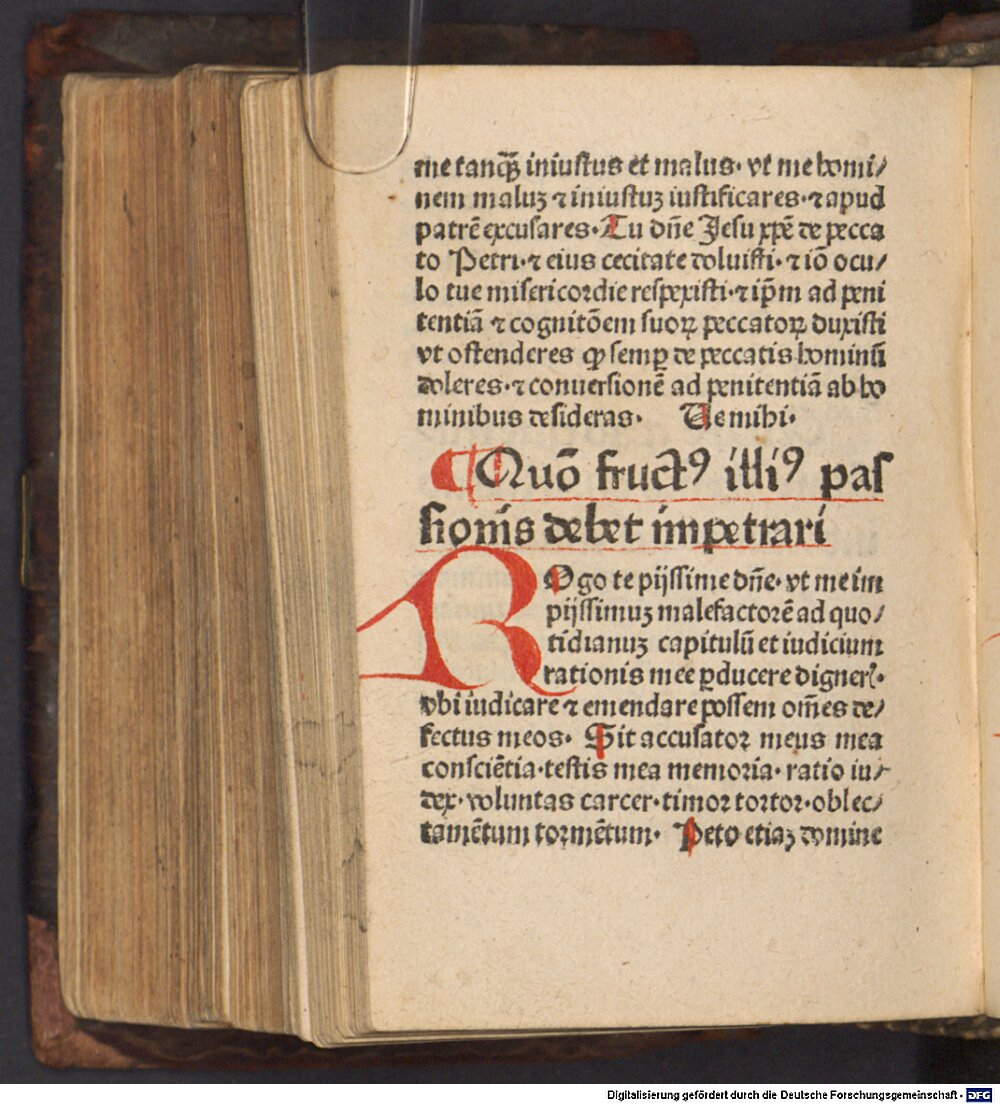 me tanq̄ȝ iniustus et malus· vt me homi/
nem maluȝ ⁊ iniustuȝ iustificares·⁊ apud
patrē excusares·Tu dñe Jesu xp̄e de pecca
to Petri·⁊ eius cecitate doluisti·⁊ iō ocu/
lo tue misericordie respexisti·⁊ ip̄m ad peni
tentiā ⁊ cognitōem suoꝝ peccatoꝝ duxisti
vt ostenderes ꝙ semꝑ de peccatis hominū
doleres·⁊ conuersionē ad penitentiā ab ho
minibus desideras· Ue mihi·
¶ Quō fructꝰ illiꝰ pas
sionis debet impetrari
ROgo te pijssime dñe· vt me im
pijssimuȝ malefactorē ad quo/
tidianuȝ capitulū et iudicium
rationis mee ꝑducere digner̄·
vbi iudicare ⁊ emendare possem om̄es de/
fectus meos· Sit accusator meus mea
consciētia·testis mea memoria· ratio iu/
dex·voluntas carcer·timor tortor·oblec/
tamētum tormētum· Peto etiaȝ domine
Digitalisierung gefördert durch die Deutsche Forschungsgemeinschaft - DFG